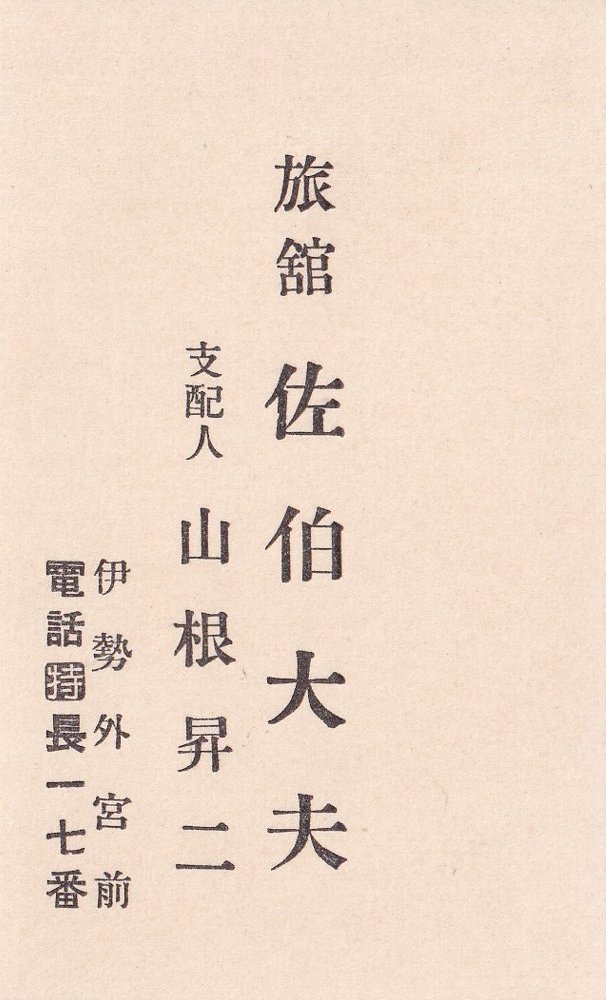 旅舘 佐伯大夫
支配人 山根昇二
伊勢外宮前
電話特長一七番